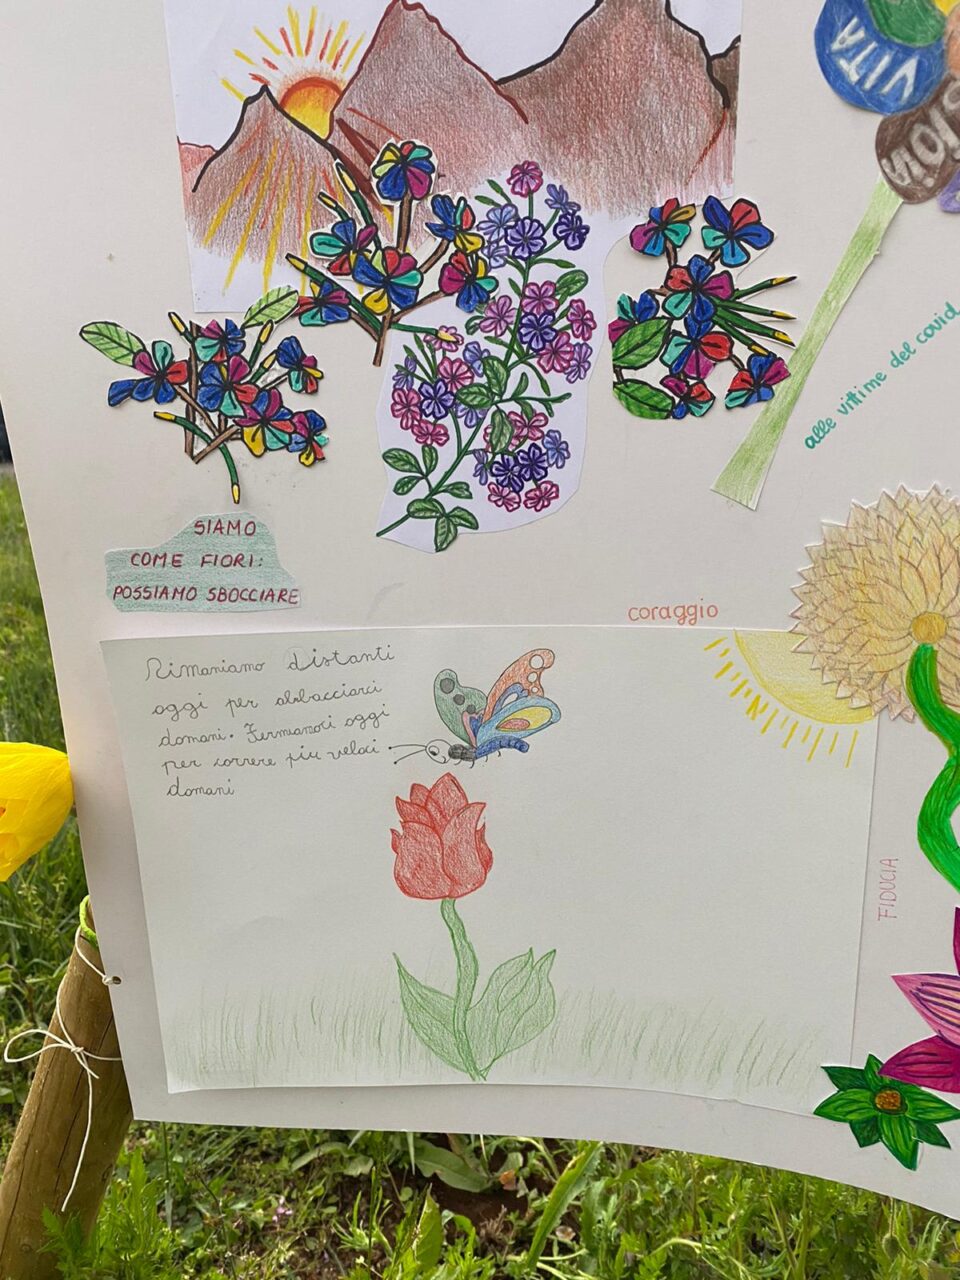 VITA
alle vittime del covid
SIAMO
COME FIORI:
POSSIAMO SBOCCIARE
coraggio
Rimaniamo distanti
oggi per abbracciarci
domani. Fermiamoci oggi
per correre più veloci
domani
FIDUCIA